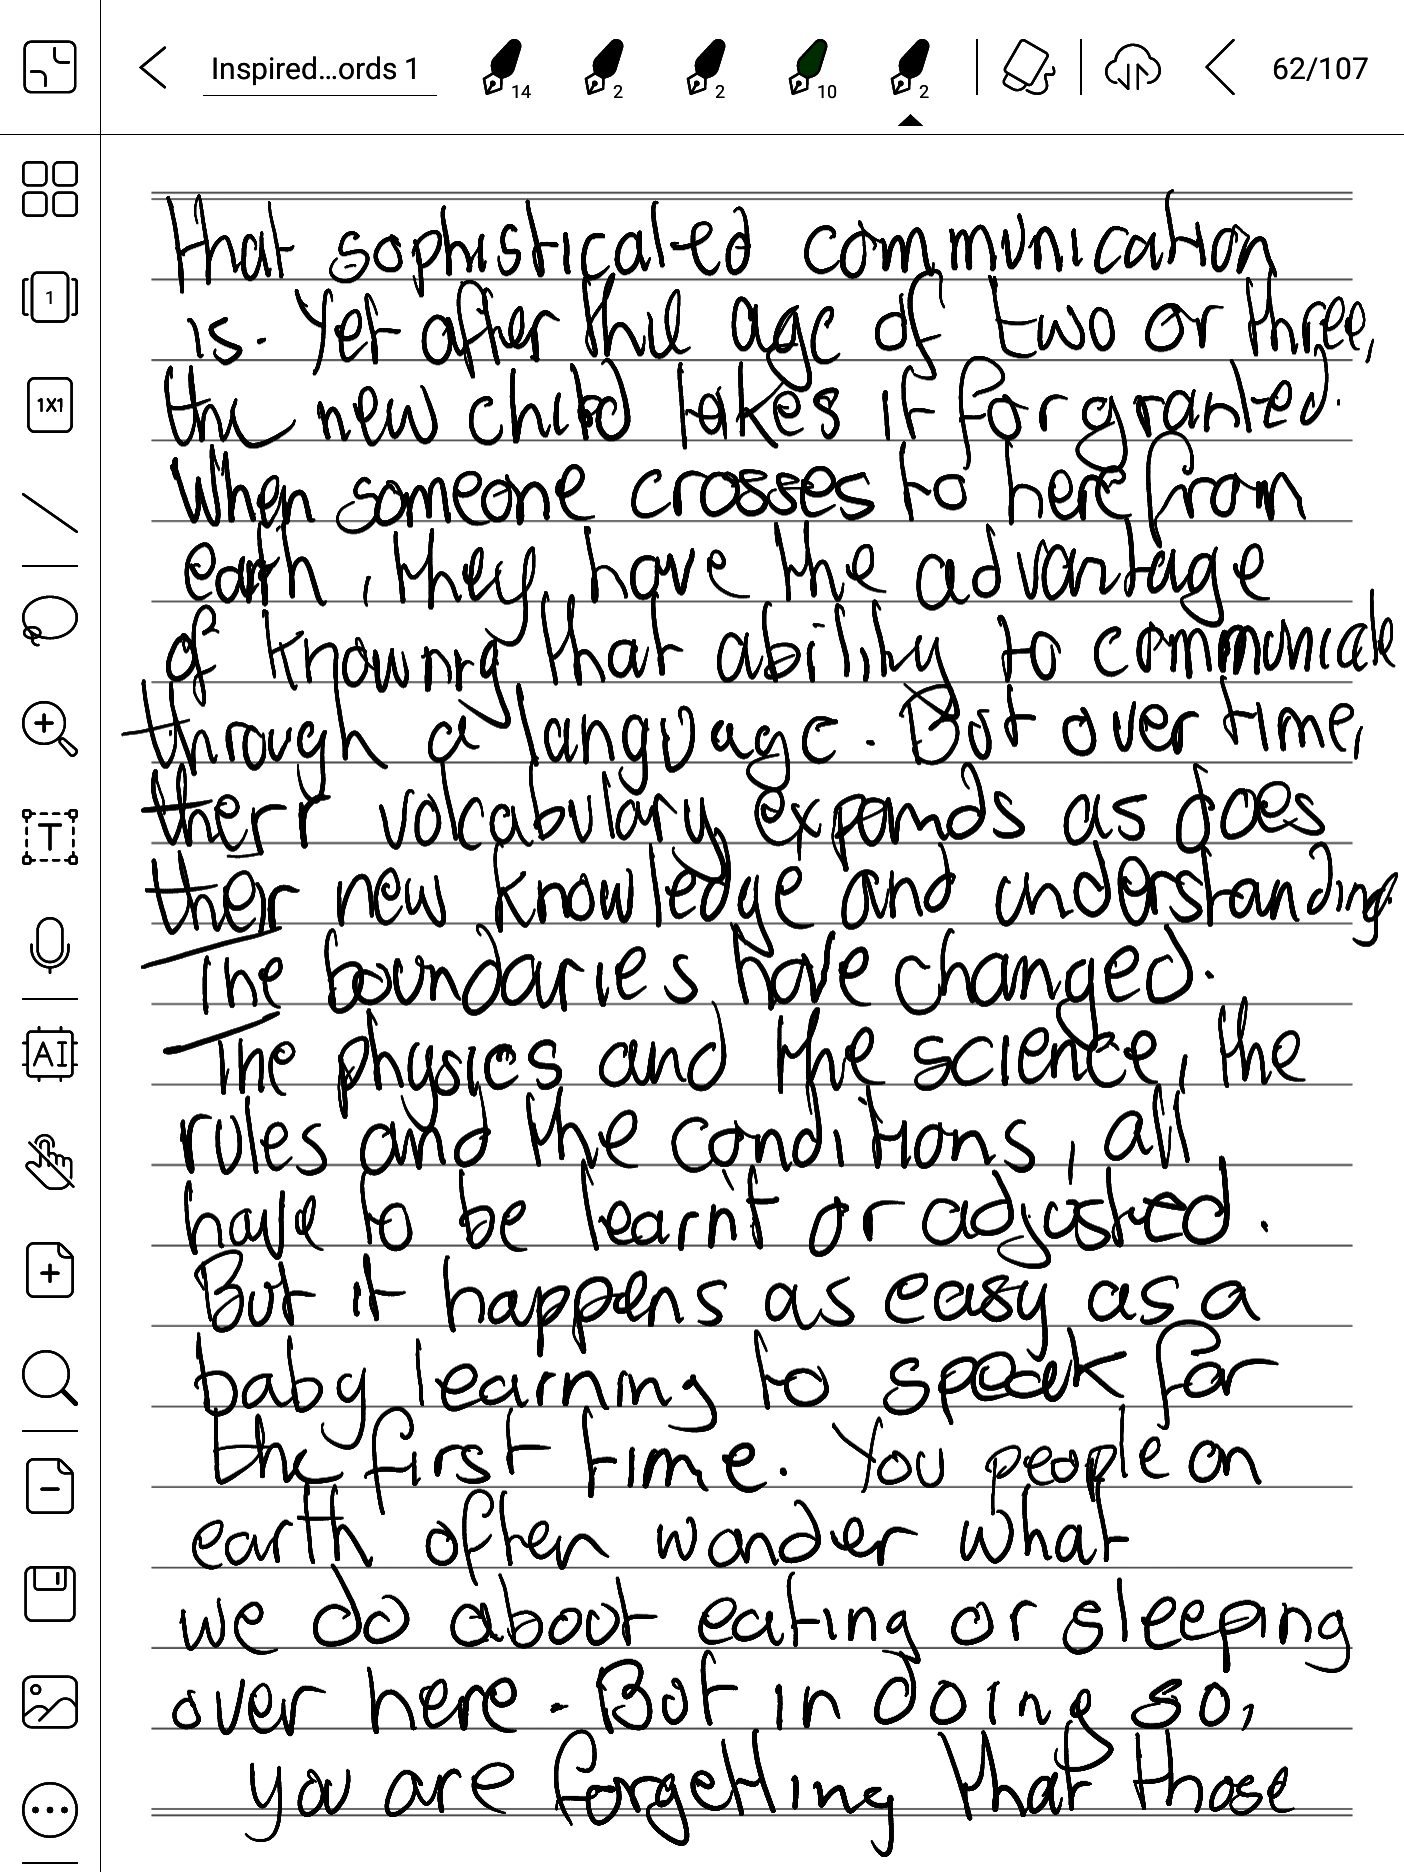 Inspired...ords 1
14
2
2
10
2
62/107
1
1X1
T
AI
that sophisticated communication
is. Yet after the age of two or three,
the new child takes it for granted.
When someone crosses to here from
earth, they have the advantage
of knowing that ability to communicate
through a language. But over time,
their volcabulary expands as does
their new knowledge and understanding.
The boundaries have changed.
The physics and the science, the
rules and the conditions, all
have to be learnt or adjusted.
But it happens as easy as a
baby learning to speak for
the first time. You people on
earth often wonder what
we do about eating or sleeping
over here. But in doing so,
you are forgetting that those